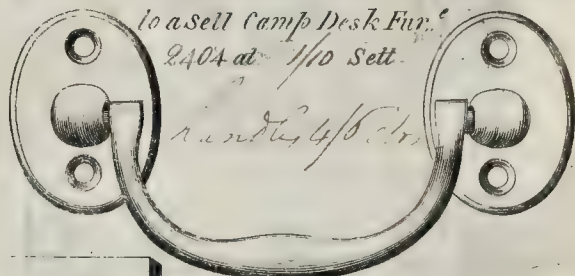 to a Sett Camp Desk Fur.e
2404 at 1/10 Sett
4/6